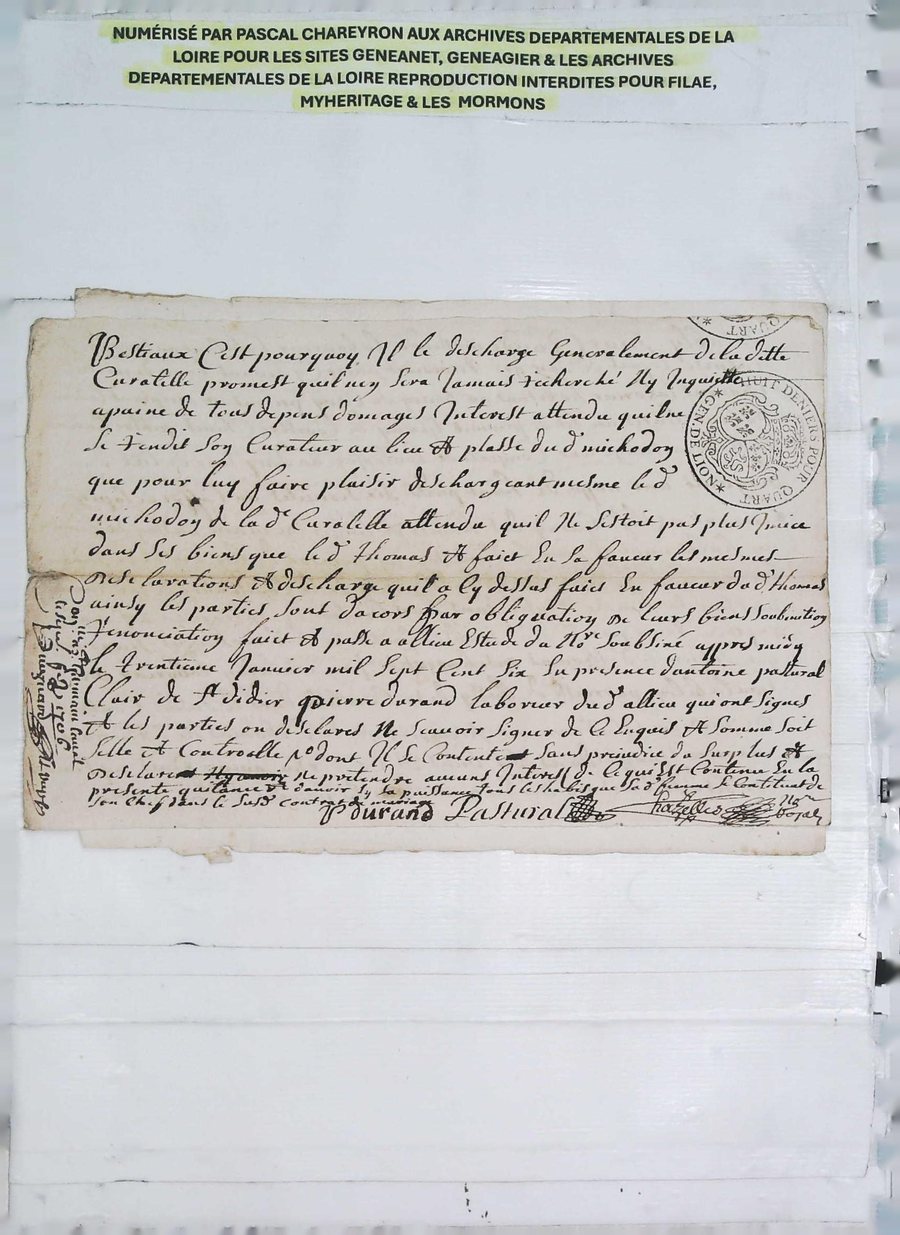 NUMÉRISÉ PAR PASCAL CHAREYRON AUX ARCHIVES DEPARTEMENTALES DE LA
LOIRE POUR LES SITES GENEANET, GENEAGIER & LES ARCHIVES
DEPARTEMENTALES DE LA LOIRE REPRODUCTION INTERDITES POUR FILAE,
MYHERITAGE & LES MORMONS
QUART
Bestiaux Cest pourquoy Il le descharge Generalement de la ditte
Curatelle promest quil ney sera Jamais recherché Ny Inquiette
apaine de tous depens domages Interest attendu quil ne
se rendit son Curateur au lieu et plasse du d. michodon
que pour luy faire plaisir deschargeant mesme le d.
michodon de la d. Curatelle attendu quil Ne sestoit pas plus Imice
dans ses biens que le d. thomas et faict En sa faueur les mesmes
Desclarations et descharge quil a Cy dessus faict En faueur du d. thomas
ainsy les parties sont dacors par obliguation de leurs biens soubmition
renonciation faict et passe a allieu Estude du No.re soubsiné appres midy
le trentieme Januier mil sept Cent six En presence dantoine pastural
Clair de St didier pierre durand laboreur du d. allieu qui ont signes
et les parties on desclares Ne scauoir signer de Ce Enquis et somme soit
selle et Controelle dont Il se Contente sans prejudice du surplus et
Desclare ne pretendre aucuns Interest de Ce qui Est Contenu En la
presente quitance dauoir sy sa puissance tous les habis que sa d. femme se Constituat de
son Chef dans le susd. contrat de mariage
P durand Pastural Chazelles No.re Royal
HUIT DENIERS POUR QUART
GEN. DE
1706